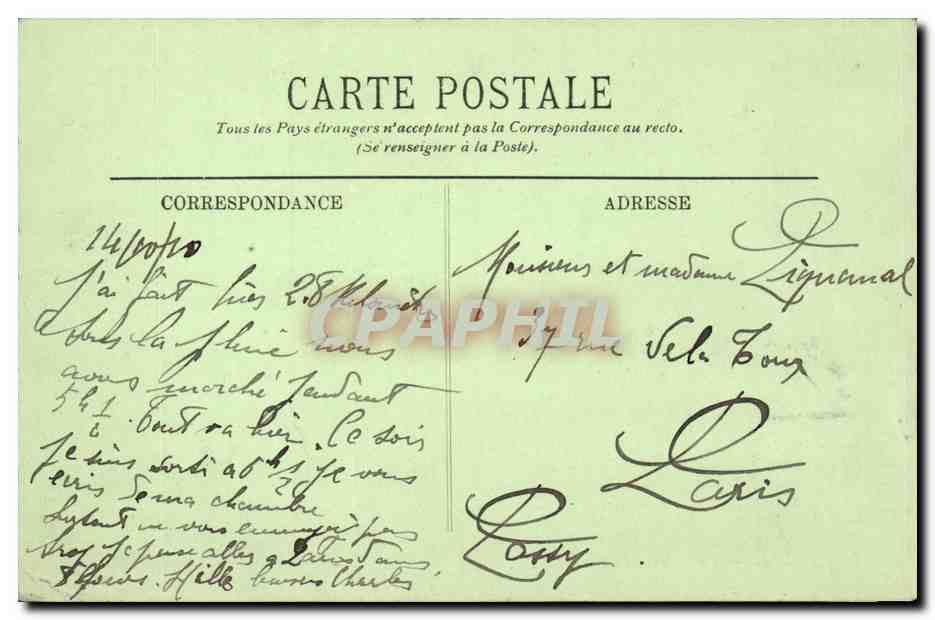 CARTE POSTALE
Tous les Pays étrangers n'acceptent pas la Correspondance au recto.
(Se renseigner à la Poste).
CORRESPONDANCE
ADRESSE
14/10/10
J'ai fait hier 28 Kilomètres
sous la pluie nous
avons marché pendant
5h 1/2 Tout va bien. Ce soir
je suis sorti a 6h je vous
écris de ma chambre
Surtout ne vous ennuyez pas
trop Je pense aller a Paris dans
8 jours. Mille baisers Charles
Monsieur et madame Liquemal
37 rue de la Tour
Paris
Passy
CPAPHIL